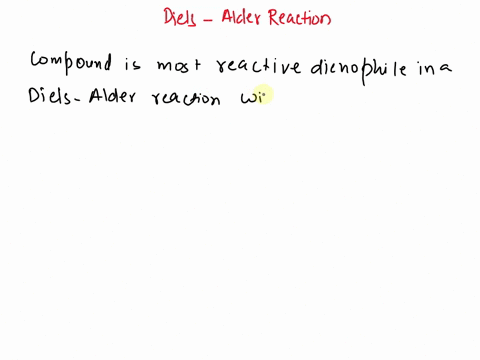 Diels - Alder Reaction
Compound is most reactive dienophile in a
Diels - Alder reaction wi